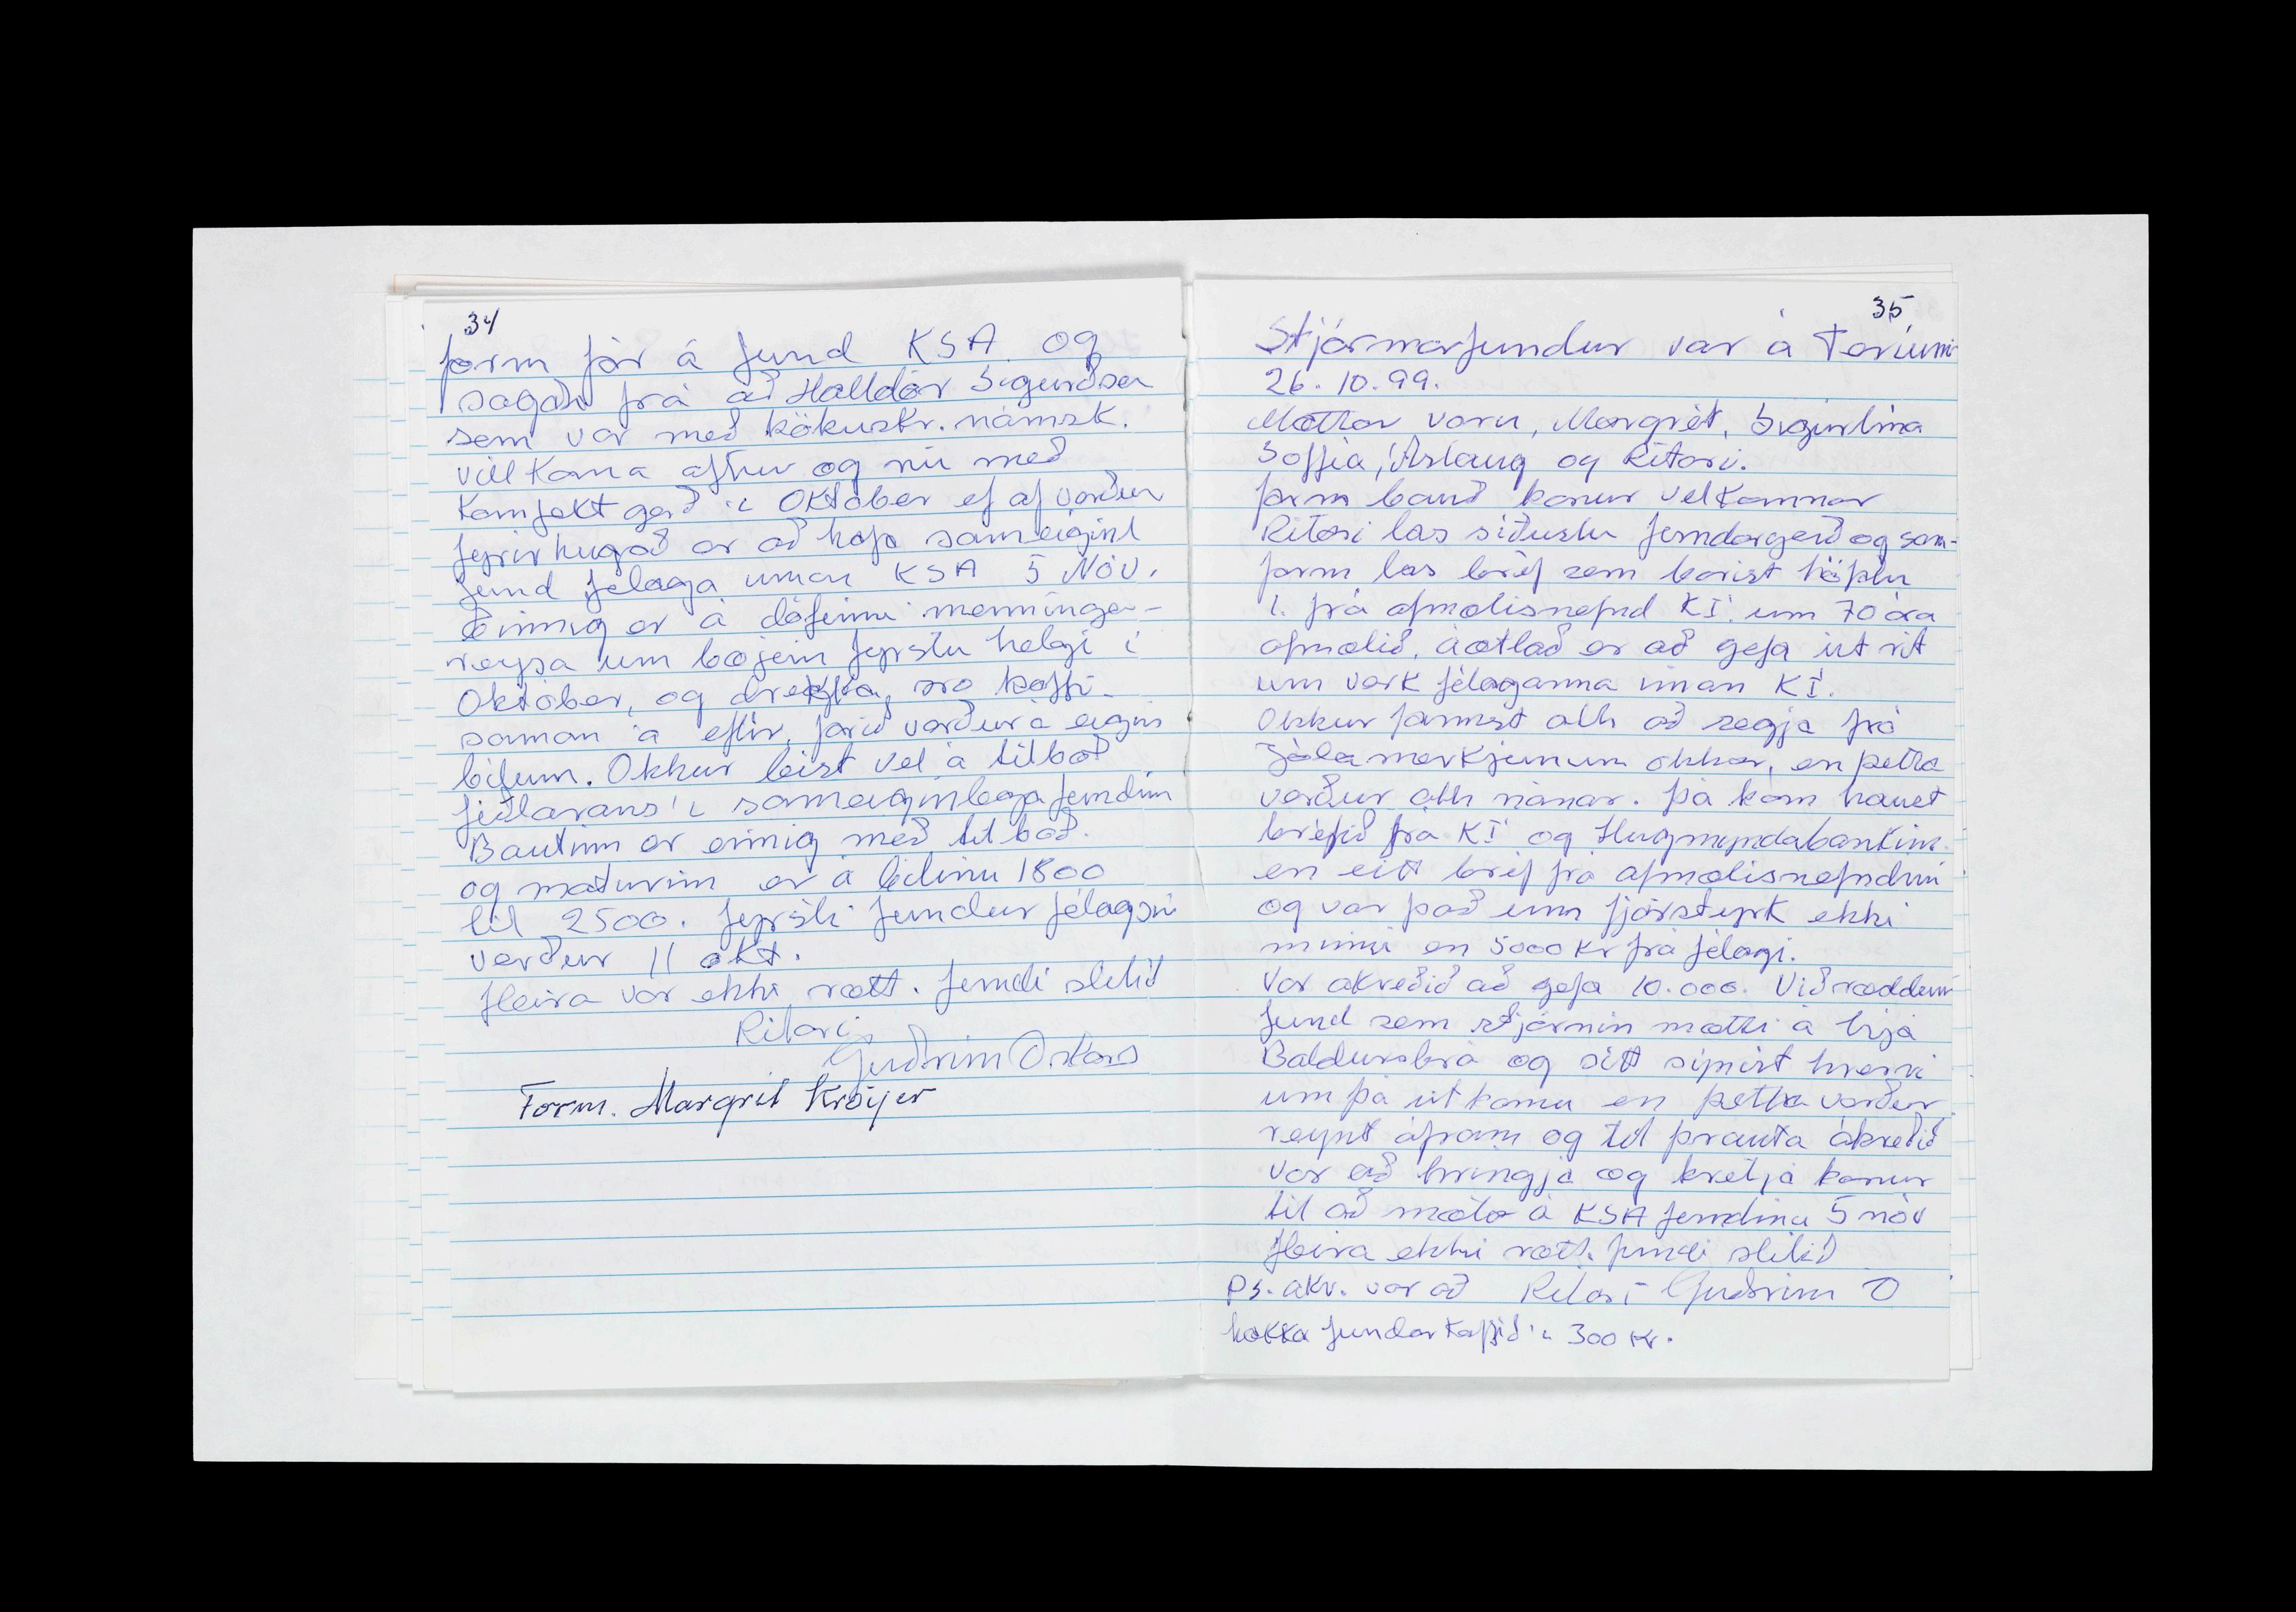 34
form fór á fund KSA og
sagði frá að Halldór Sigurðsson
sem var með kökuskr. námsk.
vill koma aftur og nú með
Komfekt gerð í Október ef af verður
fyrirhugað er að hafa sameiginl
fund félaga innan KSA 5 Nóv.
Einnig er á döfinni menningar-
reysa um bæjein fyrstu helgi í
Október, og drekka svo kaffi
saman á eftir, farið verður á eigin
bílum. Okkur leist vel á tilboð
fiðlarans í sameiginlega fundin
Bautinn er einnig með tilboð.
og maturinn er á bilinu 1800
til 2500. fyrsti fundur félagsin
verður 11 okt.
fleira var ekki rætt. fundi slitið
Ritari
Guðrún Óskars
Form. Margrét Kröyer
35
Stjórnarfundur var á
26. 10. 99.
Mættar voru, Margrét, Sigurlína
Soffía, Áslaug og Ritari.
form bauð konur velkomnar
Ritari las síðustu fundargerð og sam-
form las bréf sem borist höfðu
1. frá afmælisnefnd KÍ. um 70 ára
afmælið, áætlað er að gefa út rit
um verk félaganna innan KÍ.
Okkur fannst ath að segja frá
Jólamerkjunum okkar, en þetta
verður ath nánar. þá kom haust
bréfið frá KÍ og Hugmyndabankinn.
en eitt bréf frá afmælisnefndini
og var það um fjárstyrk ekki
minni en 5000 kr frá félagi.
Var akveðið að gefa 10.000. Við ræddum
fund sem stjórnin mætti á hjá
Baldursbrá og sitt sýnist hverri
um þá útkomu en þetta verður
reynt áfram og til þrauta ákveðið
var að hringja og hvetja konur
til að mæta á KSA fundina 5 nóv
fleira ekki rætt. fundi slitið
Ps. akv. var að Ritari Guðrún Ó
hækka fundarkaffið í 300 kr.